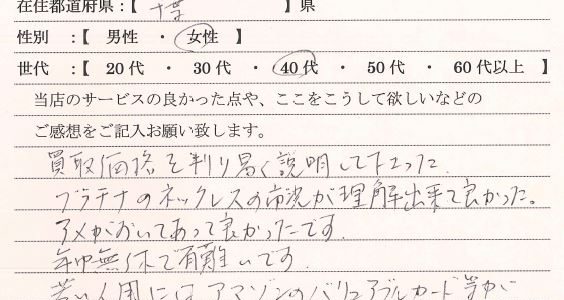 在住都道府県:【 千葉 】県
性別 :【 男性 ・ 女性 】
世代 :【 20代 ・ 30代 ・ 40代 ・ 50代 ・ 60代以上 】
当店のサービスの良かった点や、ここをこうして欲しいなどの
ご感想をご記入お願い致します。
買取価格を判り易く説明して下さった
プラチナのネックレスの市況が理解出来て良かった。
アメがおいてあって良かったです.
年中無休で有難いです.
若い人用にはアマゾンのバリュアブルカード等が